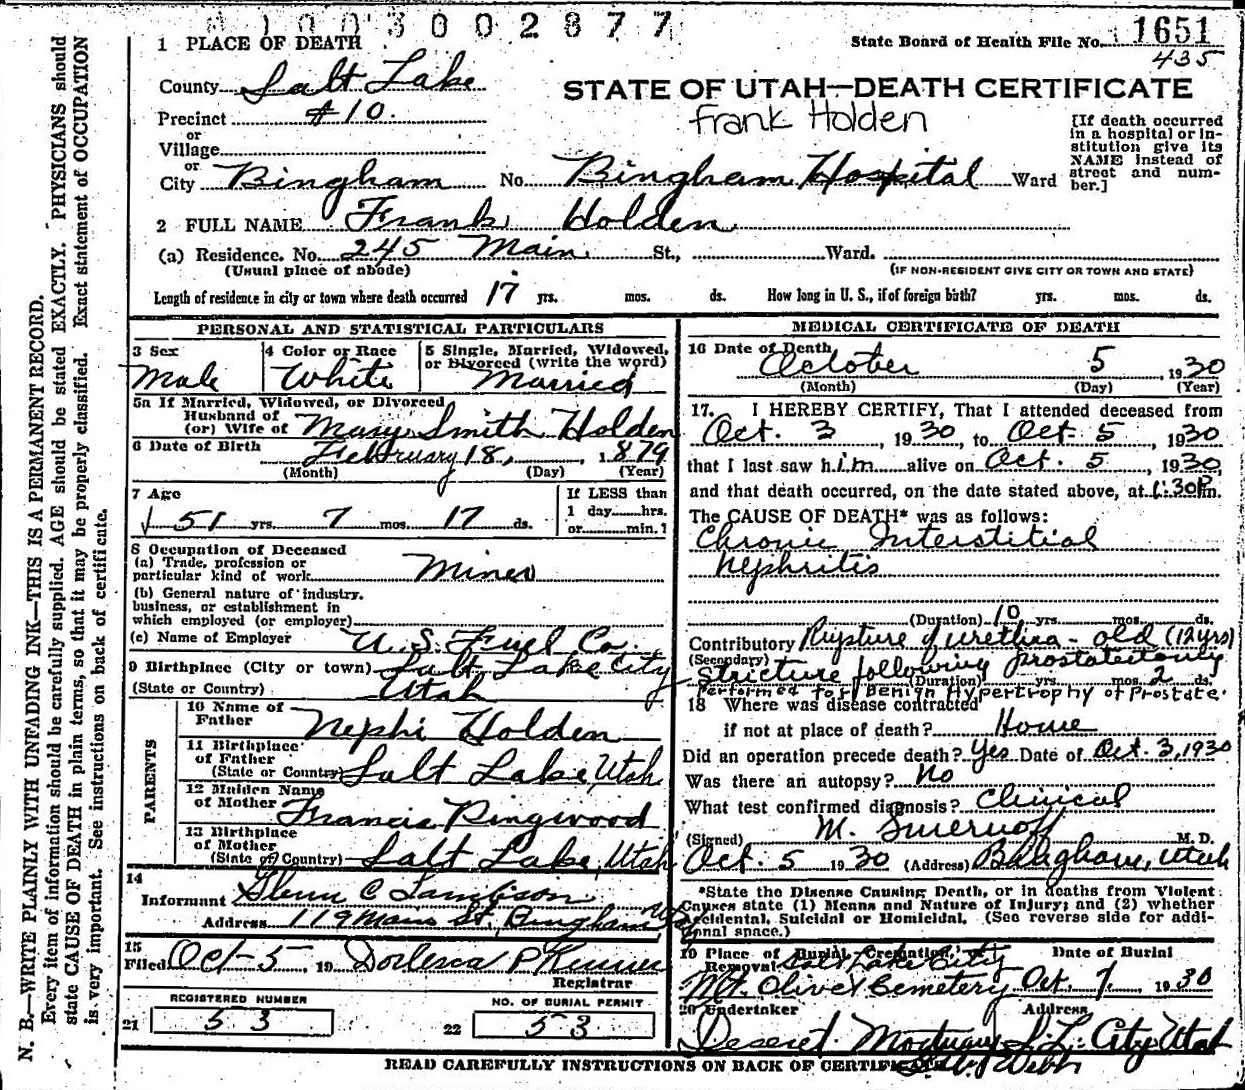 1003002877
State Board of Health File No. 1651
435
1 PLACE OF DEATH
County Salt Lake
STATE OF UTAH—DEATH CERTIFICATE
Frank Holden
Precinct #10.
or
Village
or
City Bingham No. Bingham Hospital Ward
[If death occurred
in a hospital or in-
stitution give its
NAME instead of
street and num-
ber.]
2 FULL NAME Frank Holden
(a) Residence. No. 245 Main St., Ward.
(Usual place of abode) (IF NON-RESIDENT GIVE CITY OR TOWN AND STATE)
Length of residence in city or town where death occurred 17 yrs. mos. ds. How long in U. S., if of foreign birth? yrs. mos. ds.
PERSONAL AND STATISTICAL PARTICULARS
3 Sex
Male
4 Color or Race
White
5 Single, Married, Widowed,
or Divorced (write the word)
Married
5a If Married, Widowed, or Divorced
Husband of
(or) Wife of Mary Smith Holden
6 Date of Birth
February 18, 1879
(Month) (Day) (Year)
7 Age
51 yrs. 7 mos. 17 ds.
If LESS than
1 day hrs.
or min.?
8 Occupation of Deceased
(a) Trade, profession or
particular kind of work Miner
(b) General nature of industry,
business, or establishment in
which employed (or employer)
(c) Name of Employer U. S. Fuel Co.
9 Birthplace (City or town) Salt Lake City
(State or Country) Utah
PARENTS
10 Name of
Father Nephi Holden
11 Birthplace
of Father
(State or Country) Salt Lake, Utah
12 Maiden Name
of Mother Francis Ringwood
13 Birthplace
of Mother
(State or Country) Salt Lake, Utah
14
Informant Glenn C
Address 119 Main St, Bingham
15
Filed Oct-5, 19
Registrar
REGISTERED NUMBER
21 53
NO. OF BURIAL PERMIT
22 53
MEDICAL CERTIFICATE OF DEATH
16 Date of Death
October 5, 1930
(Month) (Day) (Year)
17. I HEREBY CERTIFY, That I attended deceased from
Oct. 3, 1930, to Oct. 5, 1930
that I last saw him alive on Oct. 5, 1930,
and that death occurred, on the date stated above, at 1:30Pm.
The CAUSE OF DEATH* was as follows:
Chronic Interstitial
Nephritis
(Duration) 10 yrs. mos. ds.
Contributory Rupture of urethra - old (12 yrs)
(Secondary)
Stricture following prostatectomy
(Duration) yrs. mos. 2 ds.
Performed for Benign Hypertrophy of Prostate.
18 Where was disease contracted
if not at place of death? Home
Did an operation precede death? Yes Date of Oct. 3, 1930
Was there an autopsy? No
What test confirmed diagnosis? Clinical
(Signed) M. Smernoff M. D.
Oct. 5 1930 (Address) Bingham, Utah
*State the Disease Causing Death, or in deaths from Violent
Causes state (1) Means and Nature of Injury; and (2) whether
Accidental, Suicidal or Homicidal. (See reverse side for addi-
tional space.)
19 Place of Burial, Cremation, Date of Burial
Removal Salt Lake City
Mt. Olivet Cemetery Oct. 7, 1930
20 Undertaker Address
Deseret Mortuary S. L. City Utah
Webb
READ CAREFULLY INSTRUCTIONS ON BACK OF CERTIFICATE
N. B.—WRITE PLAINLY WITH UNFADING INK—THIS IS A PERMANENT RECORD.
Every item of information should be carefully supplied. AGE should be stated EXACTLY. PHYSICIANS should
state CAUSE OF DEATH in plain terms, so that it may be properly classified. Exact statement of OCCUPATION
is very important. See instructions on back of certificate.